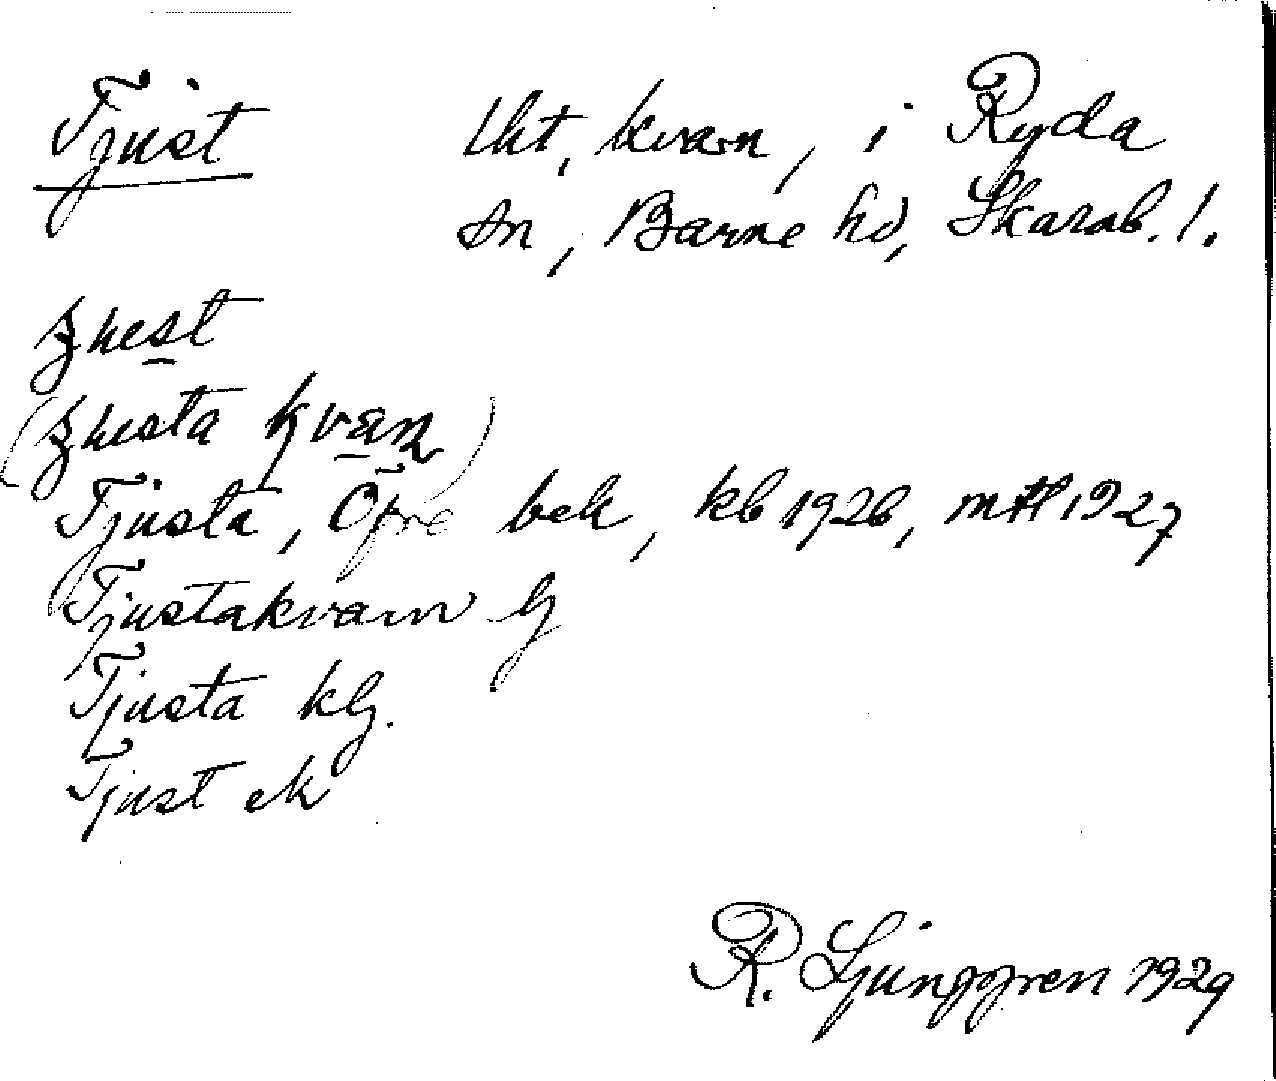 Tjust lht, kvarn, i Ryda
sn, Barne hd, Skarab. l.
Tjusta, Öfre bek, kb 1926, mtl 1927
Tjustakvarn
Tjusta
Tjust ek
R. Ljunggren 1929